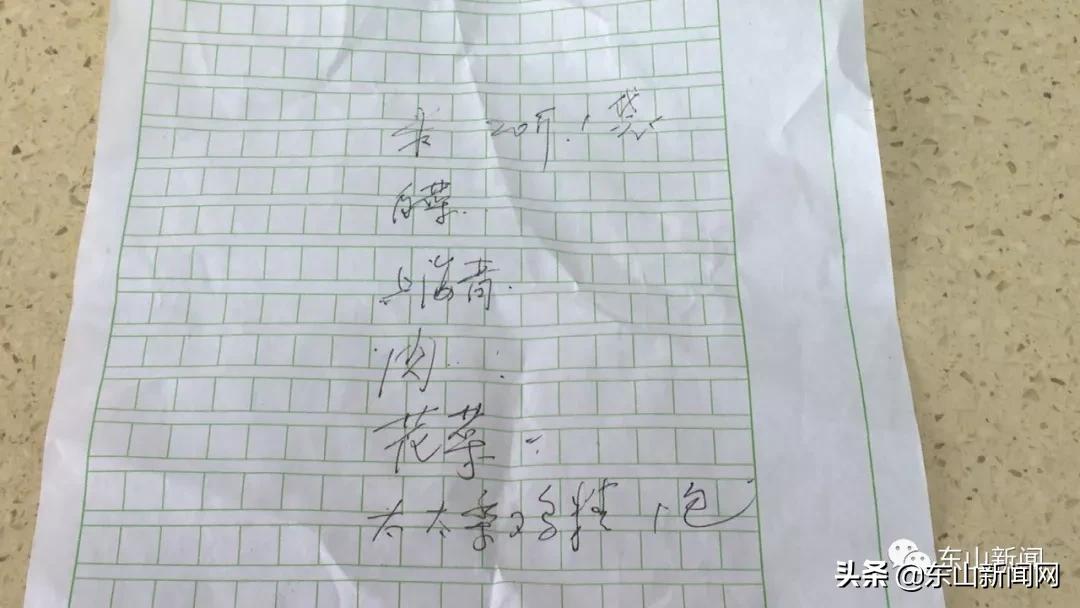 米 20斤.1袋
白菜.
上海青.
肉:
花菜:
太太乐鸡精 1包
东山新闻
头条 @东山新闻网